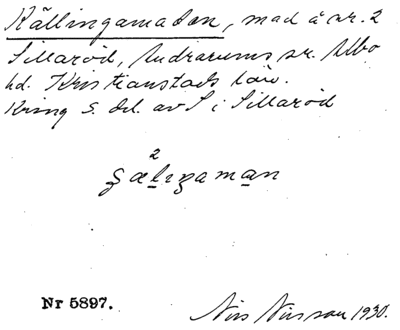 Källingamaden, mad å nr. 2
Sillaröd, Andrarums sn. Albo
hd. Kristianstads län.
Kring S. del. av S i Sillaröd
2
ʒælıgaman
Nr 5897.
Nils Nilsson 1930.